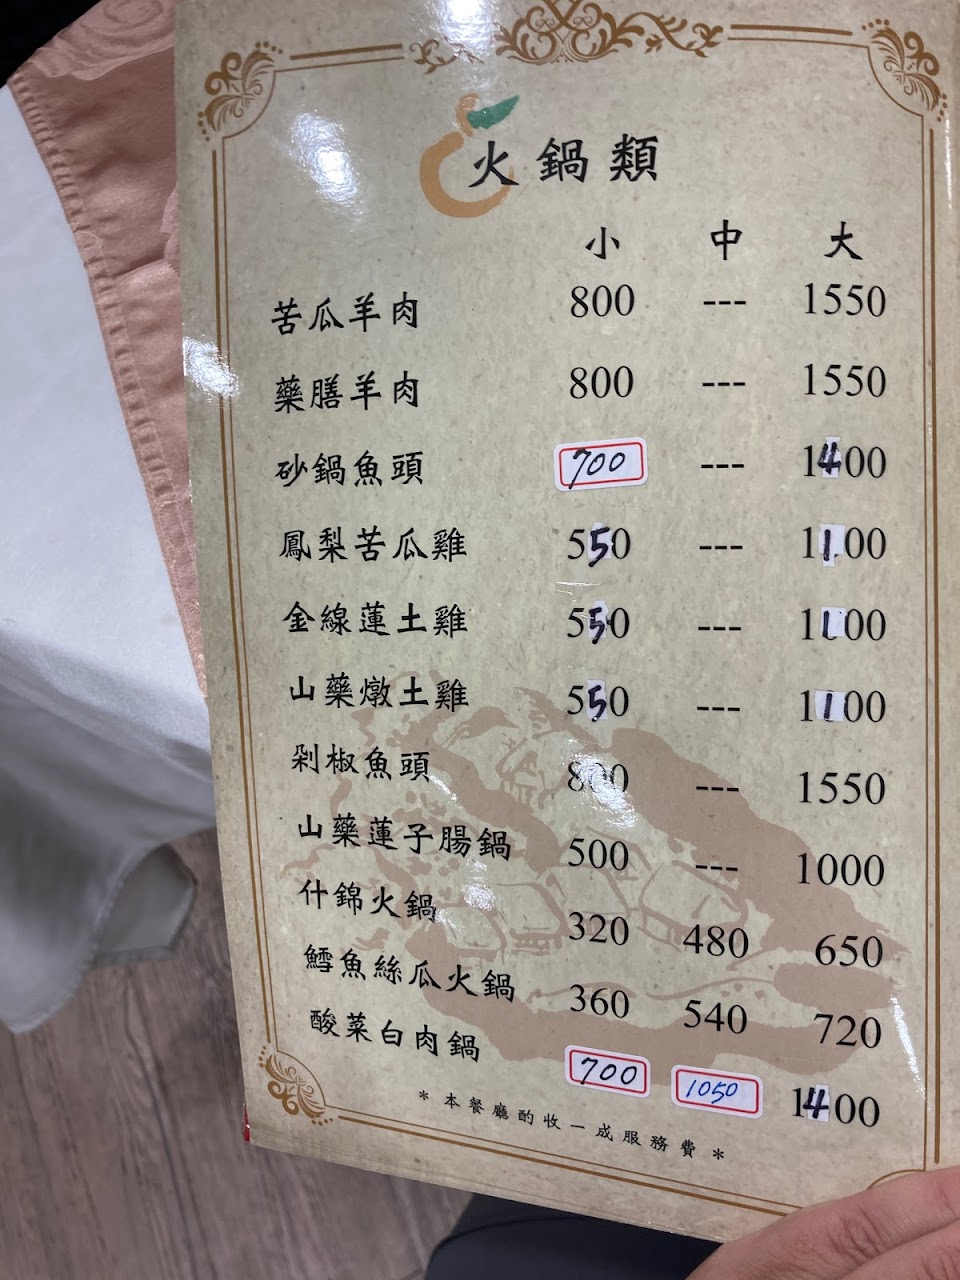 火鍋類
小 中 大
苦瓜羊肉 800 --- 1550
藥膳羊肉 800 --- 1550
砂鍋魚頭 700 --- 1400
鳳梨苦瓜雞 550 --- 1100
金線蓮土雞 550 --- 1100
山藥燉土雞 550 --- 1100
剁椒魚頭 800 --- 1550
山藥蓮子腸鍋 500 --- 1000
什錦火鍋 320 480 650
鱈魚絲瓜火鍋 360 540 720
酸菜白肉鍋 700 1050 1400
* 本餐廳酌收一成服務費 *